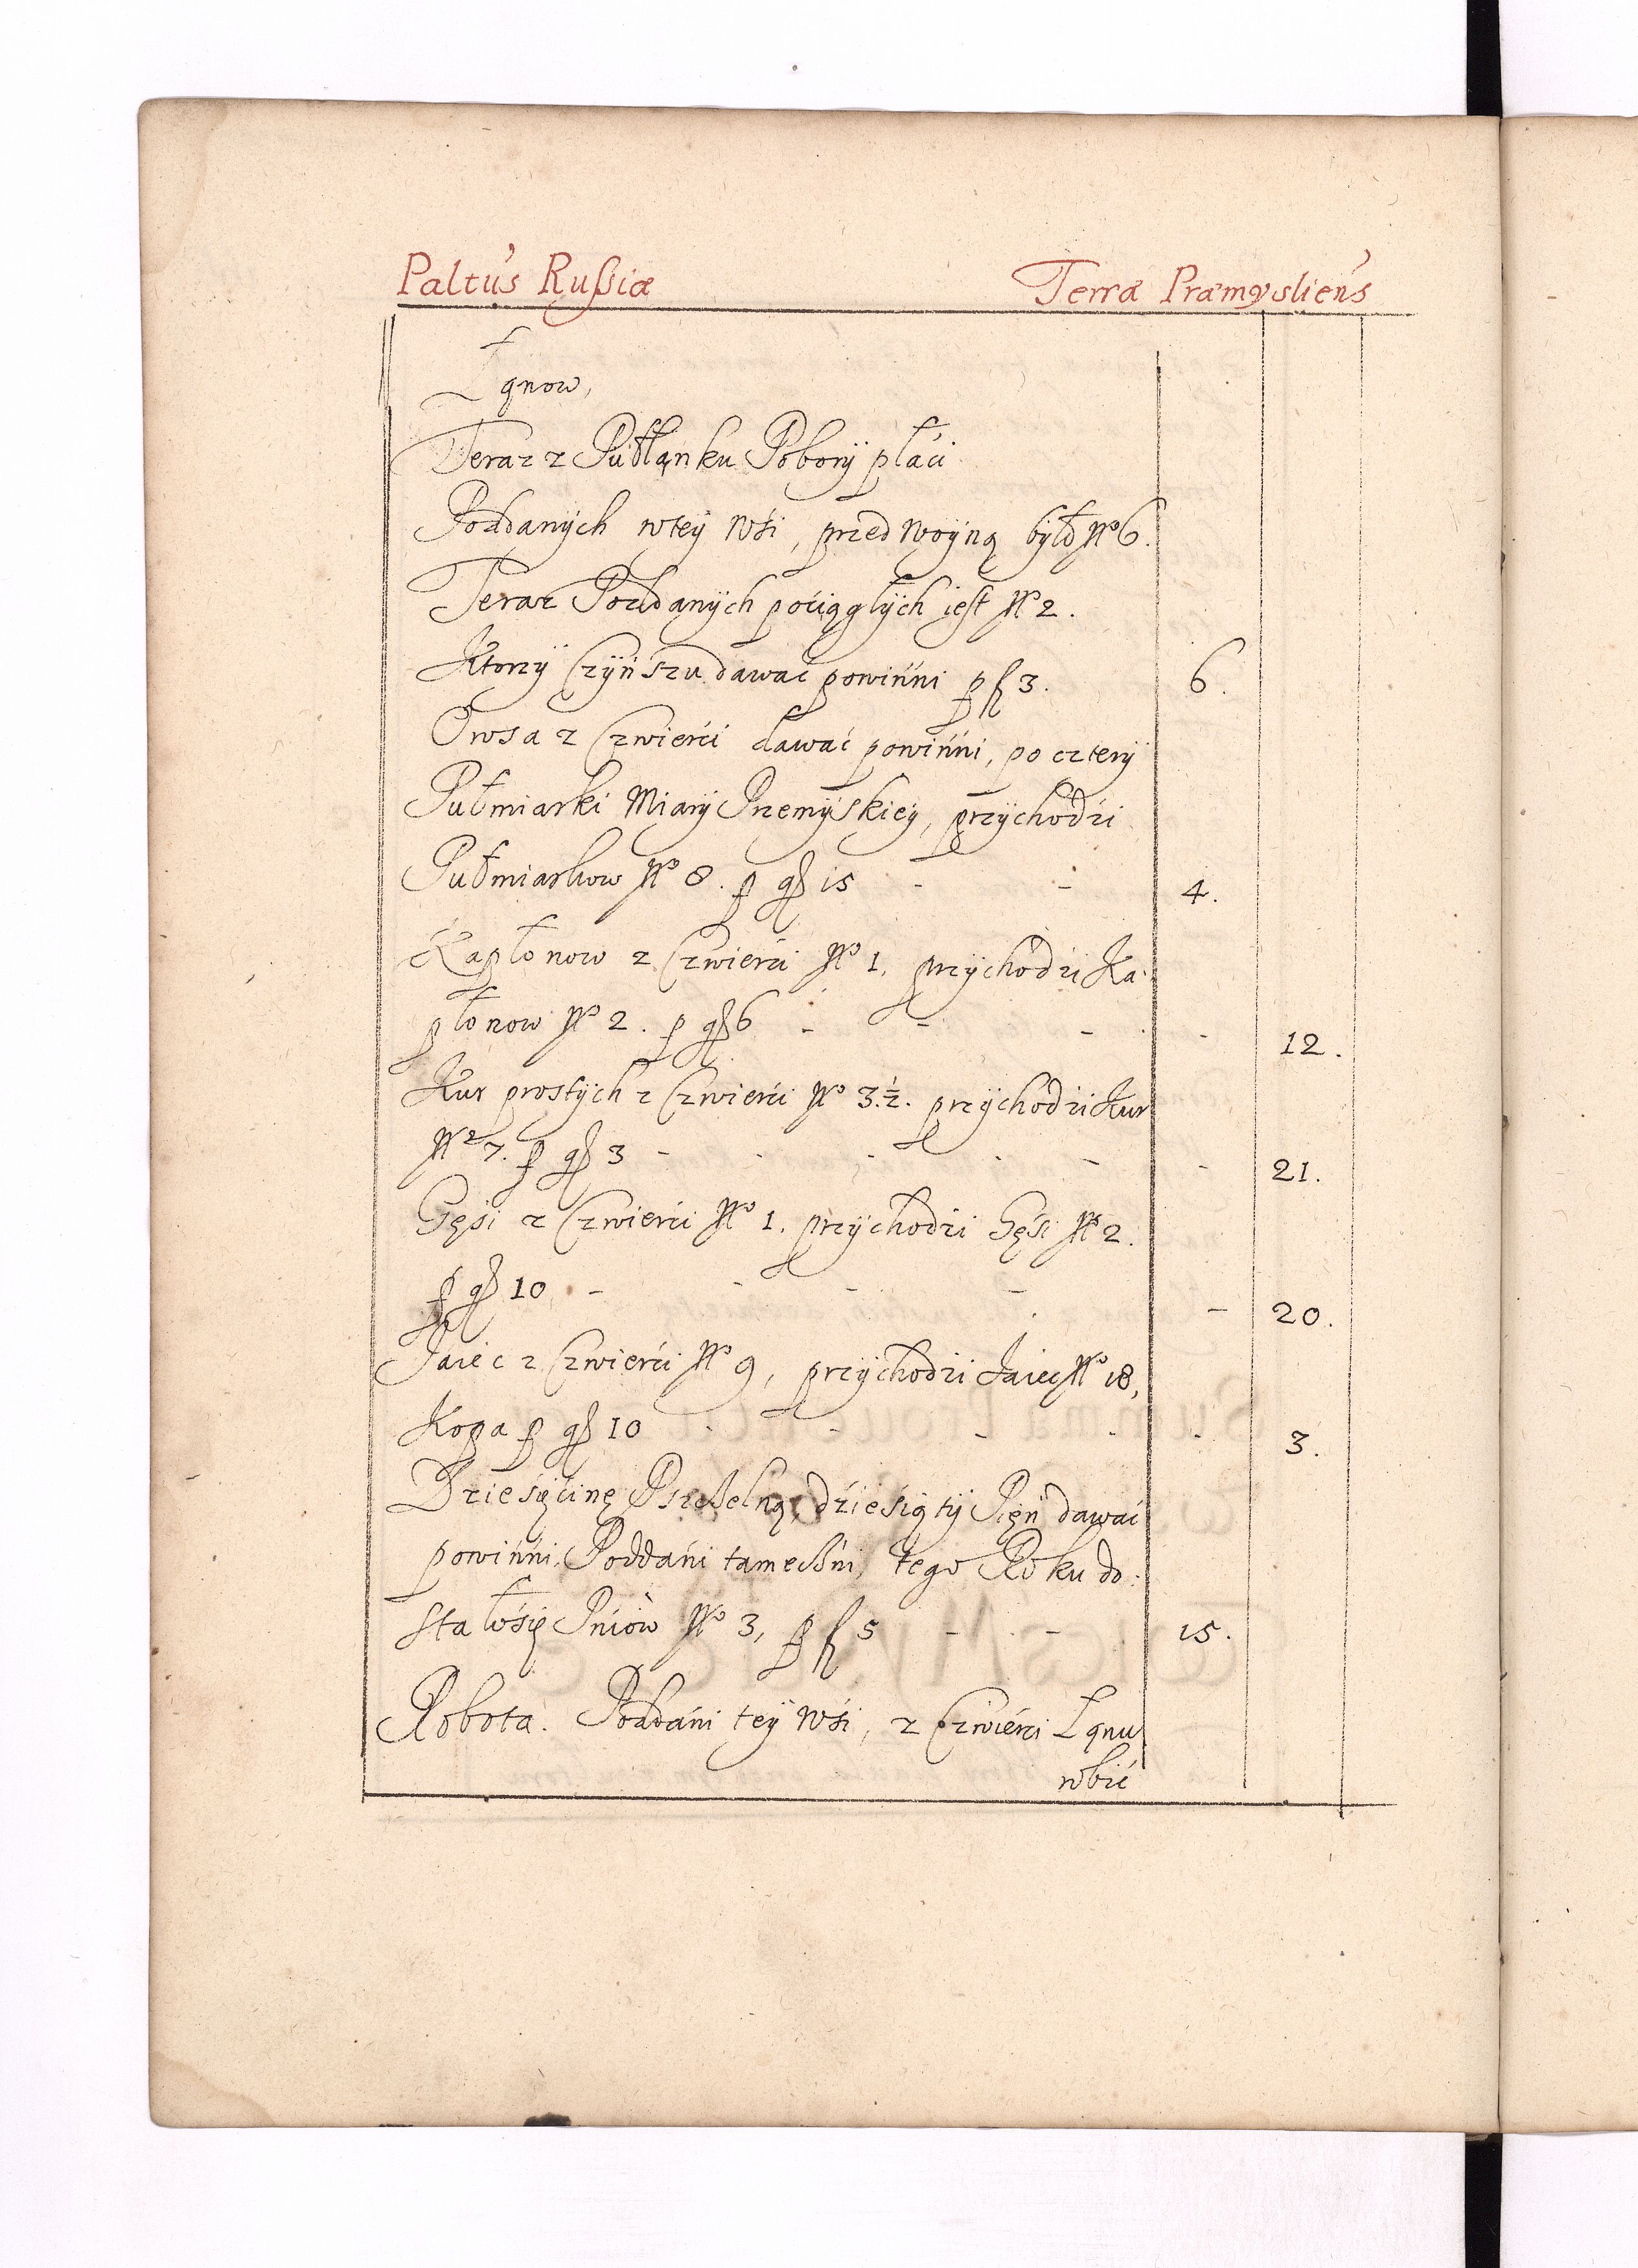 Paltus Russiæ Terra Præmysliens
Łanow,
Teraz z Pułłanku Pobory płaći
Poddanych wtey Wśi, przed Woyną było No 6.
Teraz Poddanych pociągłych iest No 2.
Ktorzy Czynszu dawać powinni p fl 3. 6.
Owsa z Czwierći dawać powinni, po cztery
Pułmiarki Miary Przemyskiey, przychodźi
Pułmiarkow No 8. p gr 15 - - 4.
Kapłonow z Czwierći No 1. przychodźi Ka-
płonow No 2. p gr 6 - - - - 12.
Kur prostych z Czwierći No 3.½. przychodźi Kur
No 7. p gr 3 - - - - - - 21.
Gęśi z Czwierći No 1. przychodźi Gęśi No 2.
p gr 10 - - - - - 20.
Jaiec z Czwierći No 9, przychodźi Jaiec No 18,
Kopa p gr 10 - - - - - 3.
Dziesięćinę Pszczelną, dźieśiąty Pień dawać
powinni, Poddani tameczni, tego Roku do-
stałosię Pniow No 3, p fl 5 - - 15.
Robota. Poddani tey Wśi, z Czwierći Łanu
robić